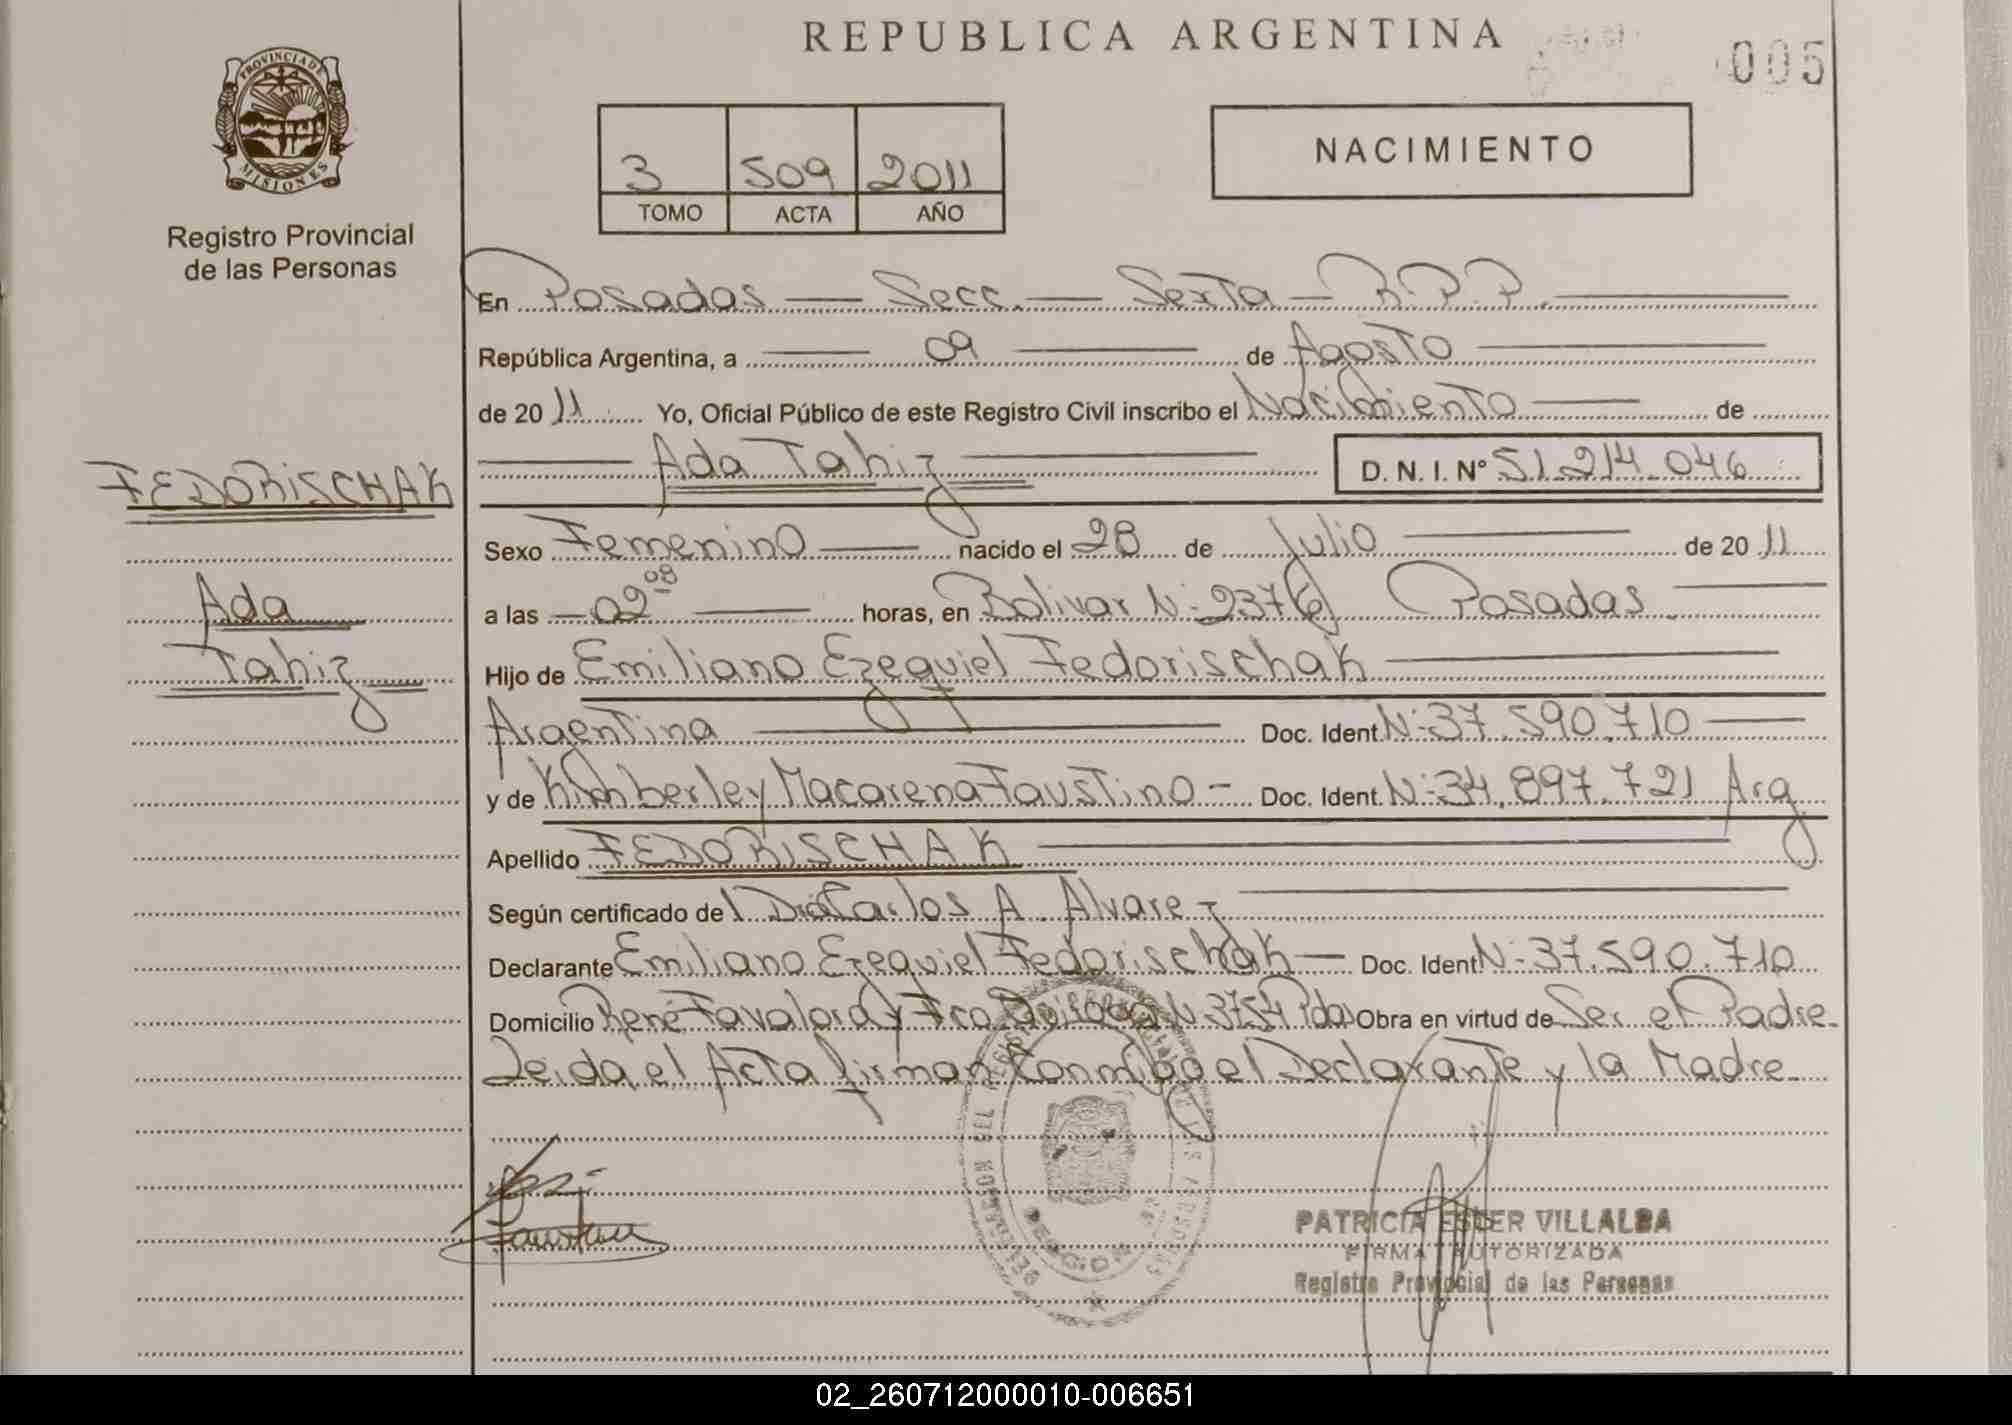 REPUBLICA ARGENTINA
005
PROVINCIA DE
MISIONES
Registro Provincial
de las Personas
3 509 2011
TOMO ACTA AÑO
NACIMIENTO
En Posadas — Secc. — Sexta — R.P.P.
República Argentina, a 09 de Agosto
de 2011 Yo, Oficial Público de este Registro Civil inscribo el Nacimiento de
Ada Tahiz D. N. I. N° 51.214.046
FEDORISCHAK
Ada
Tahiz
Sexo Femenino nacido el 28 de Julio de 2011
a las 02 08 horas, en Bolivar N: 2376 Posadas
Hijo de Emiliano Ezequiel Fedorischak
Argentina Doc. Ident. N: 37.590.710
y de Kimberley Macarena Faustino - Doc. Ident. N: 34.897.721 Arg
Apellido FEDORISCHAK
Según certificado del Dr. Carlos A. Alvarez
Declarante Emiliano Ezequiel Fedorischak — Doc. Ident N: 37.590.710
Domicilio René Favaloro y Fco N 3754 Pdas Obra en virtud de Ser el Padre
Leida el Acta firman conmigo el Declarante y la Madre
PATRICIA ESTER VILLALBA
FIRMA AUTORIZADA
Registro Provincial de las Personas
02_260712000010-006651